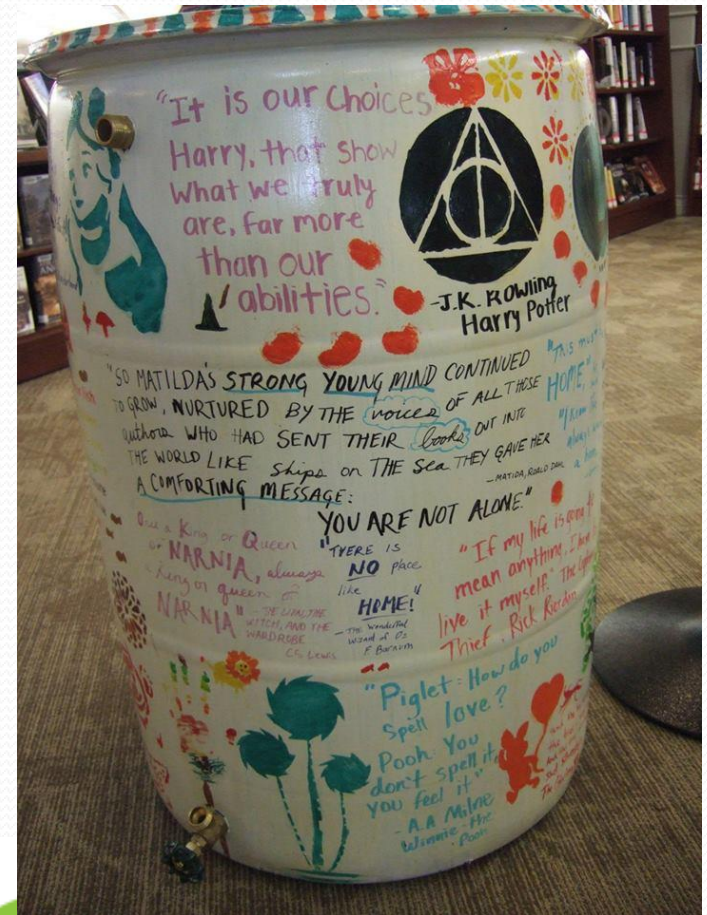 "It is our Choices
Harry, that show
what we truly
are, far more
than our
abilities."
-J.K. Rowling
Harry Potter
"SO MATILDA'S STRONG YOUNG MIND CONTINUED
TO GROW, NURTURED BY THE voices OF ALL THOSE
authors WHO HAD SENT THEIR books OUT INTO
THE WORLD LIKE Ships on THE Sea THEY GAVE HER
A COMFORTING MESSAGE:
-MATILDA, ROALD DAHL
YOU ARE NOT ALONE."
"This must
HOME,"
"I know
always
a home
Once a King or Queen
of NARNIA, always
a King or queen of
NARNIA"
WITCH, AND THE
WARDROBE
C.S. Lewis
"THERE IS
NO place
like
HOME!"
-The Wonderful
Wizard of Oz
F. Barnum
"If my life is going to
mean anything, I have
live it myself." The Lightning
Thief. Rick Riordan
"Piglet: How do you
Spell love?
Pooh: You
don't spell it,
you feel it"
- A.A Milne
Winnie-the
-Pooh